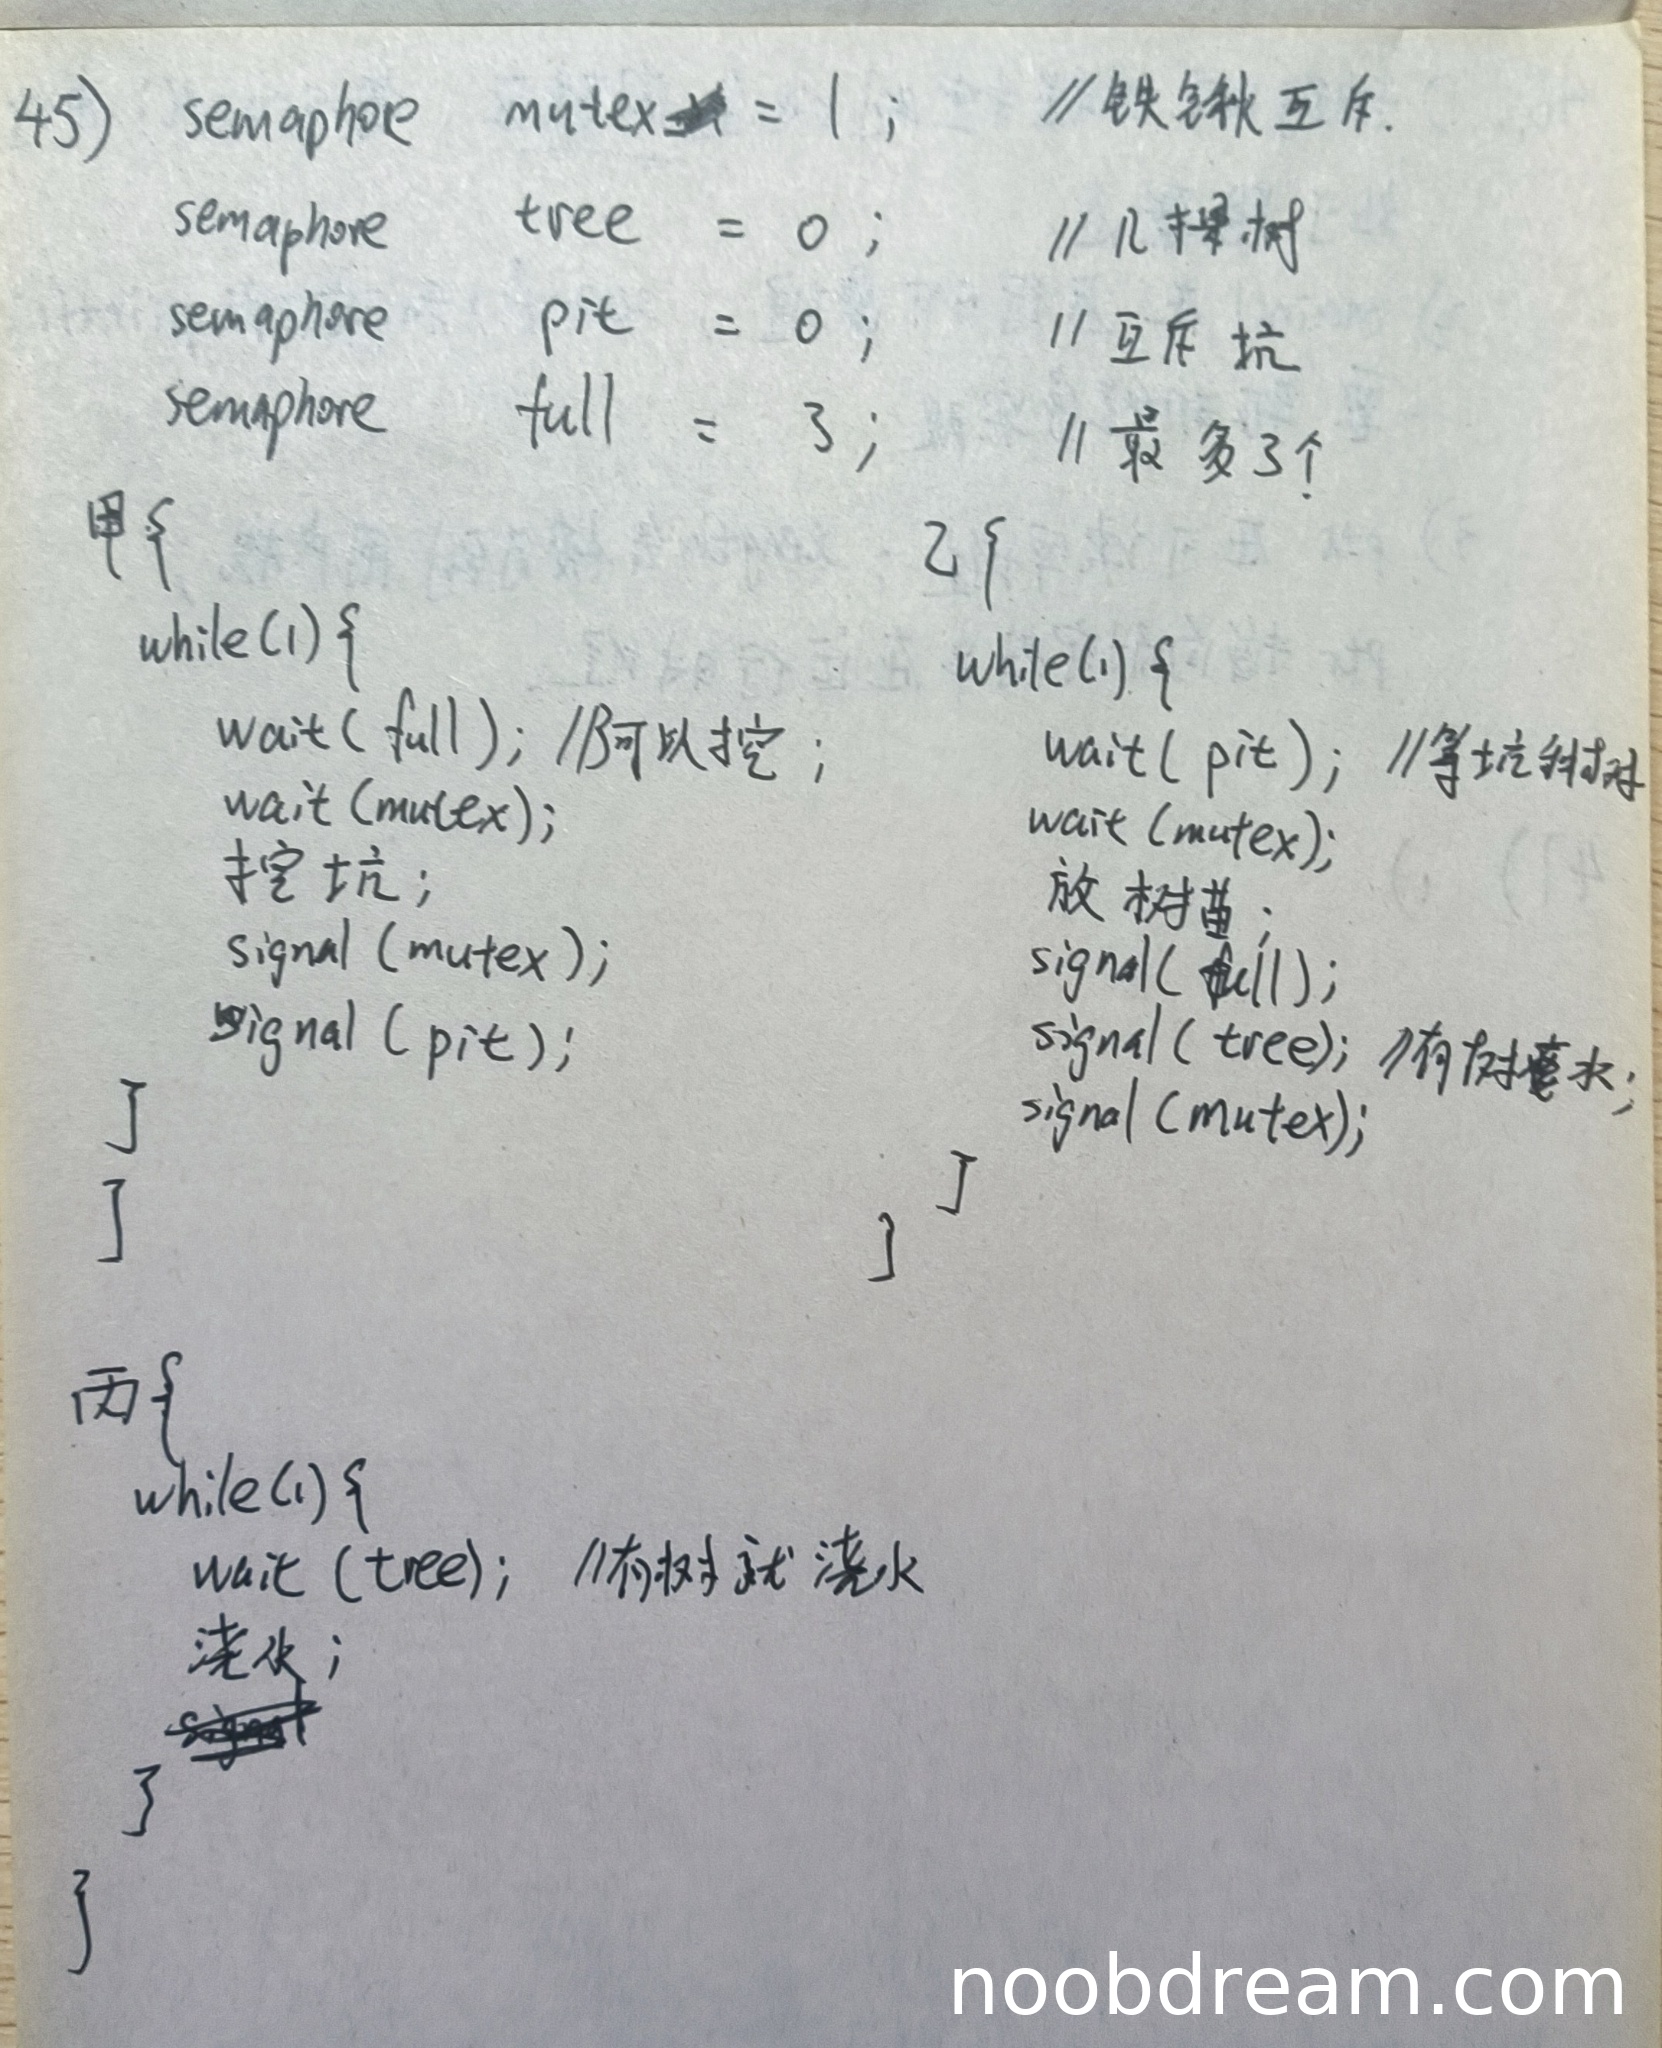 45) semaphore mutex = 1 ; // 铁锹互斥.
semaphore tree = 0 ; // 几棵树
semaphore pit = 0 ; // 互斥坑
semaphore full = 3 ; // 最多3个
甲{
while(1){
wait( full ); //可以挖 ;
wait (mutex);
挖坑 ;
signal (mutex);
signal ( pit );
}
}
乙{
while(1) {
wait( pit ); //等坑
wait (mutex);
放树苗 ;
signal( full );
signal( tree ); //有树浇水;
signal (mutex);
}
}
丙{
while(1){
wait (tree); //有树就浇水
浇水 ;
}
}
noobdream.com